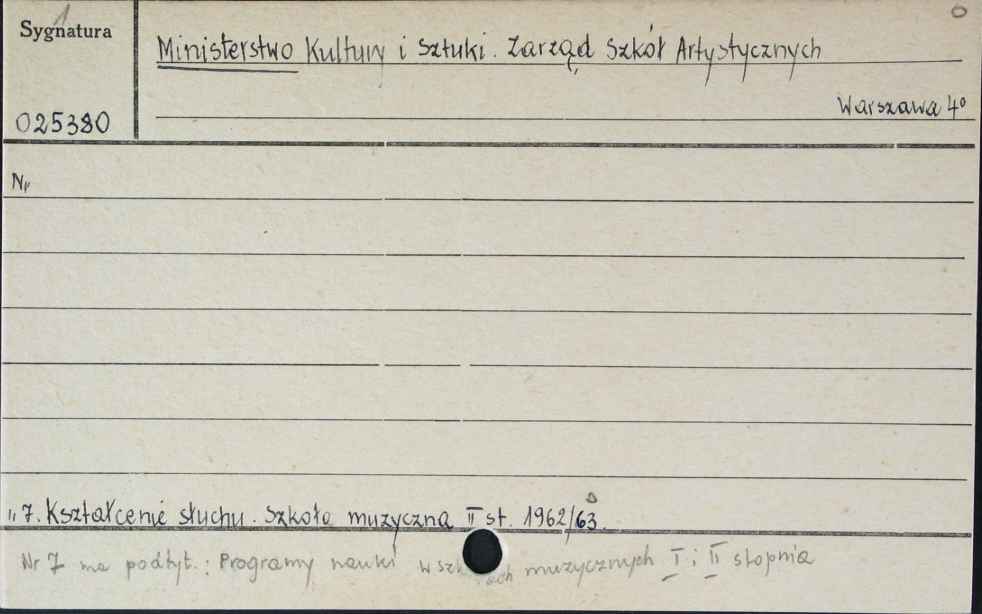 Sygnatura
Ministerstwo Kultury i Sztuki. Zarząd Szkół Artystycznych
Warszawa 4°
025380
Nr
„ 7. Kształcenie słuchu. Szkoła muzyczna II st. 1962/63.
Nr 7 ma podtyt.: Programy nauki w muzycznych I i II stopnia